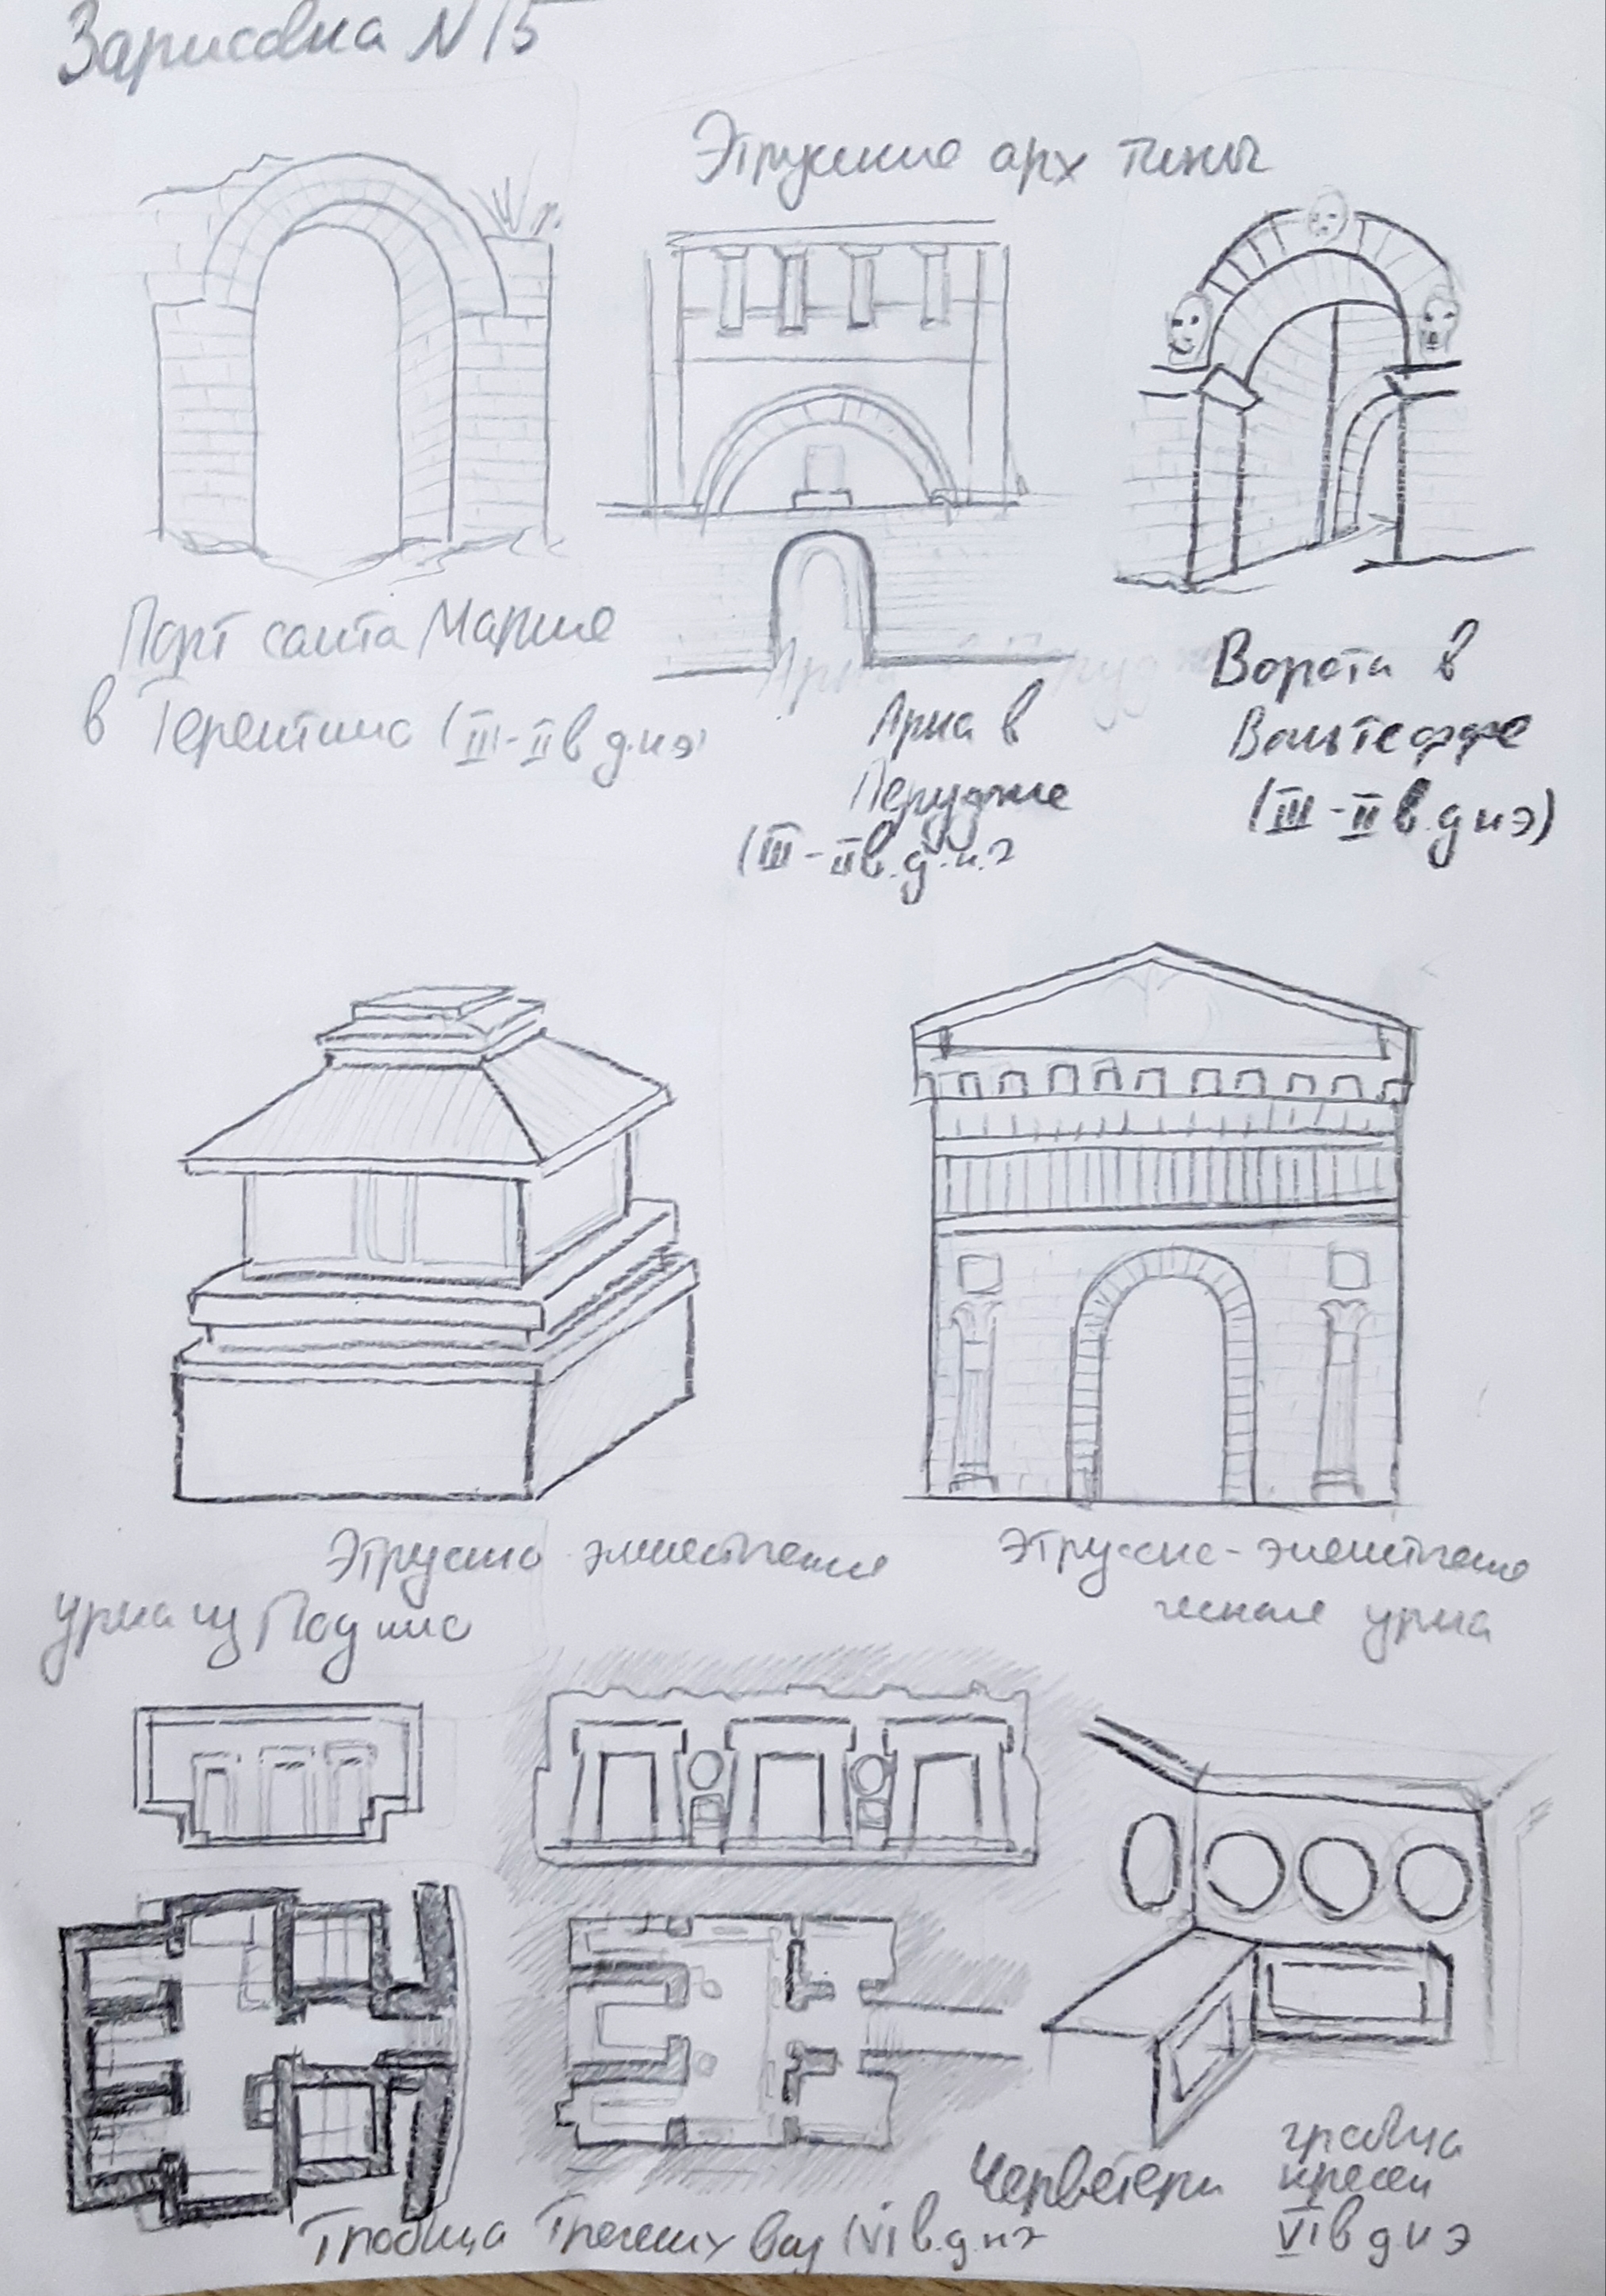 Зарисовка N15
Этруские арх типы
Порт санта Марие
в Терентино (III-II в д.н.э)
Арка в
Перудже
(III-II в. д.н.э
Ворота в
Вольтерре
(III-II в. д н э)
Этруско элинистическая
урна из
Этруско-элинистиче
ческая урна
Гробница Греческих ваз (VI в. д н э
Черветери
гробница
кресел
VI в д н э